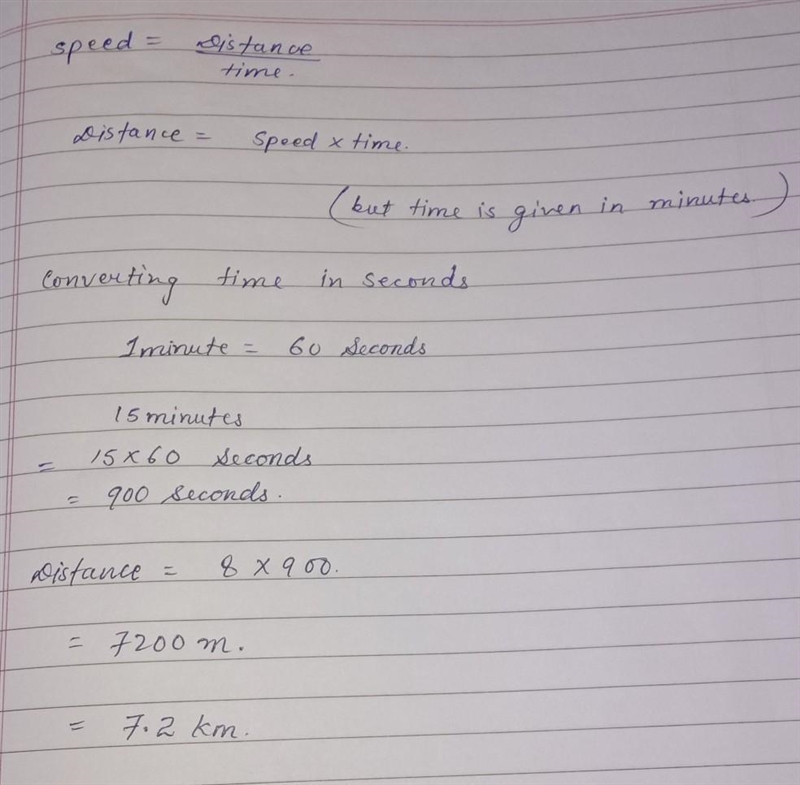 speed = Distance
time.
Distance = Speed x time.
(but time is given in minutes.)
Converting time in seconds
1minute = 60 seconds
15 minutes
= 15 x 60 seconds
= 900 seconds.
Distance = 8 x 900.
= 7200 m.
= 7.2 km.